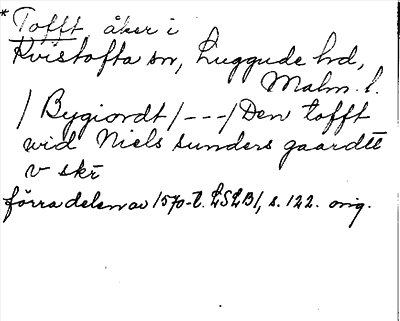 * Tofft, åker i
Kvistofta sn, Luggude hd,
Malm. l.
/ Bygiordt / --- / Den tofft
wid Niels sunders gaardtt
v skr
förra delen av 1570-t. LSLB1, s. 122. orig.